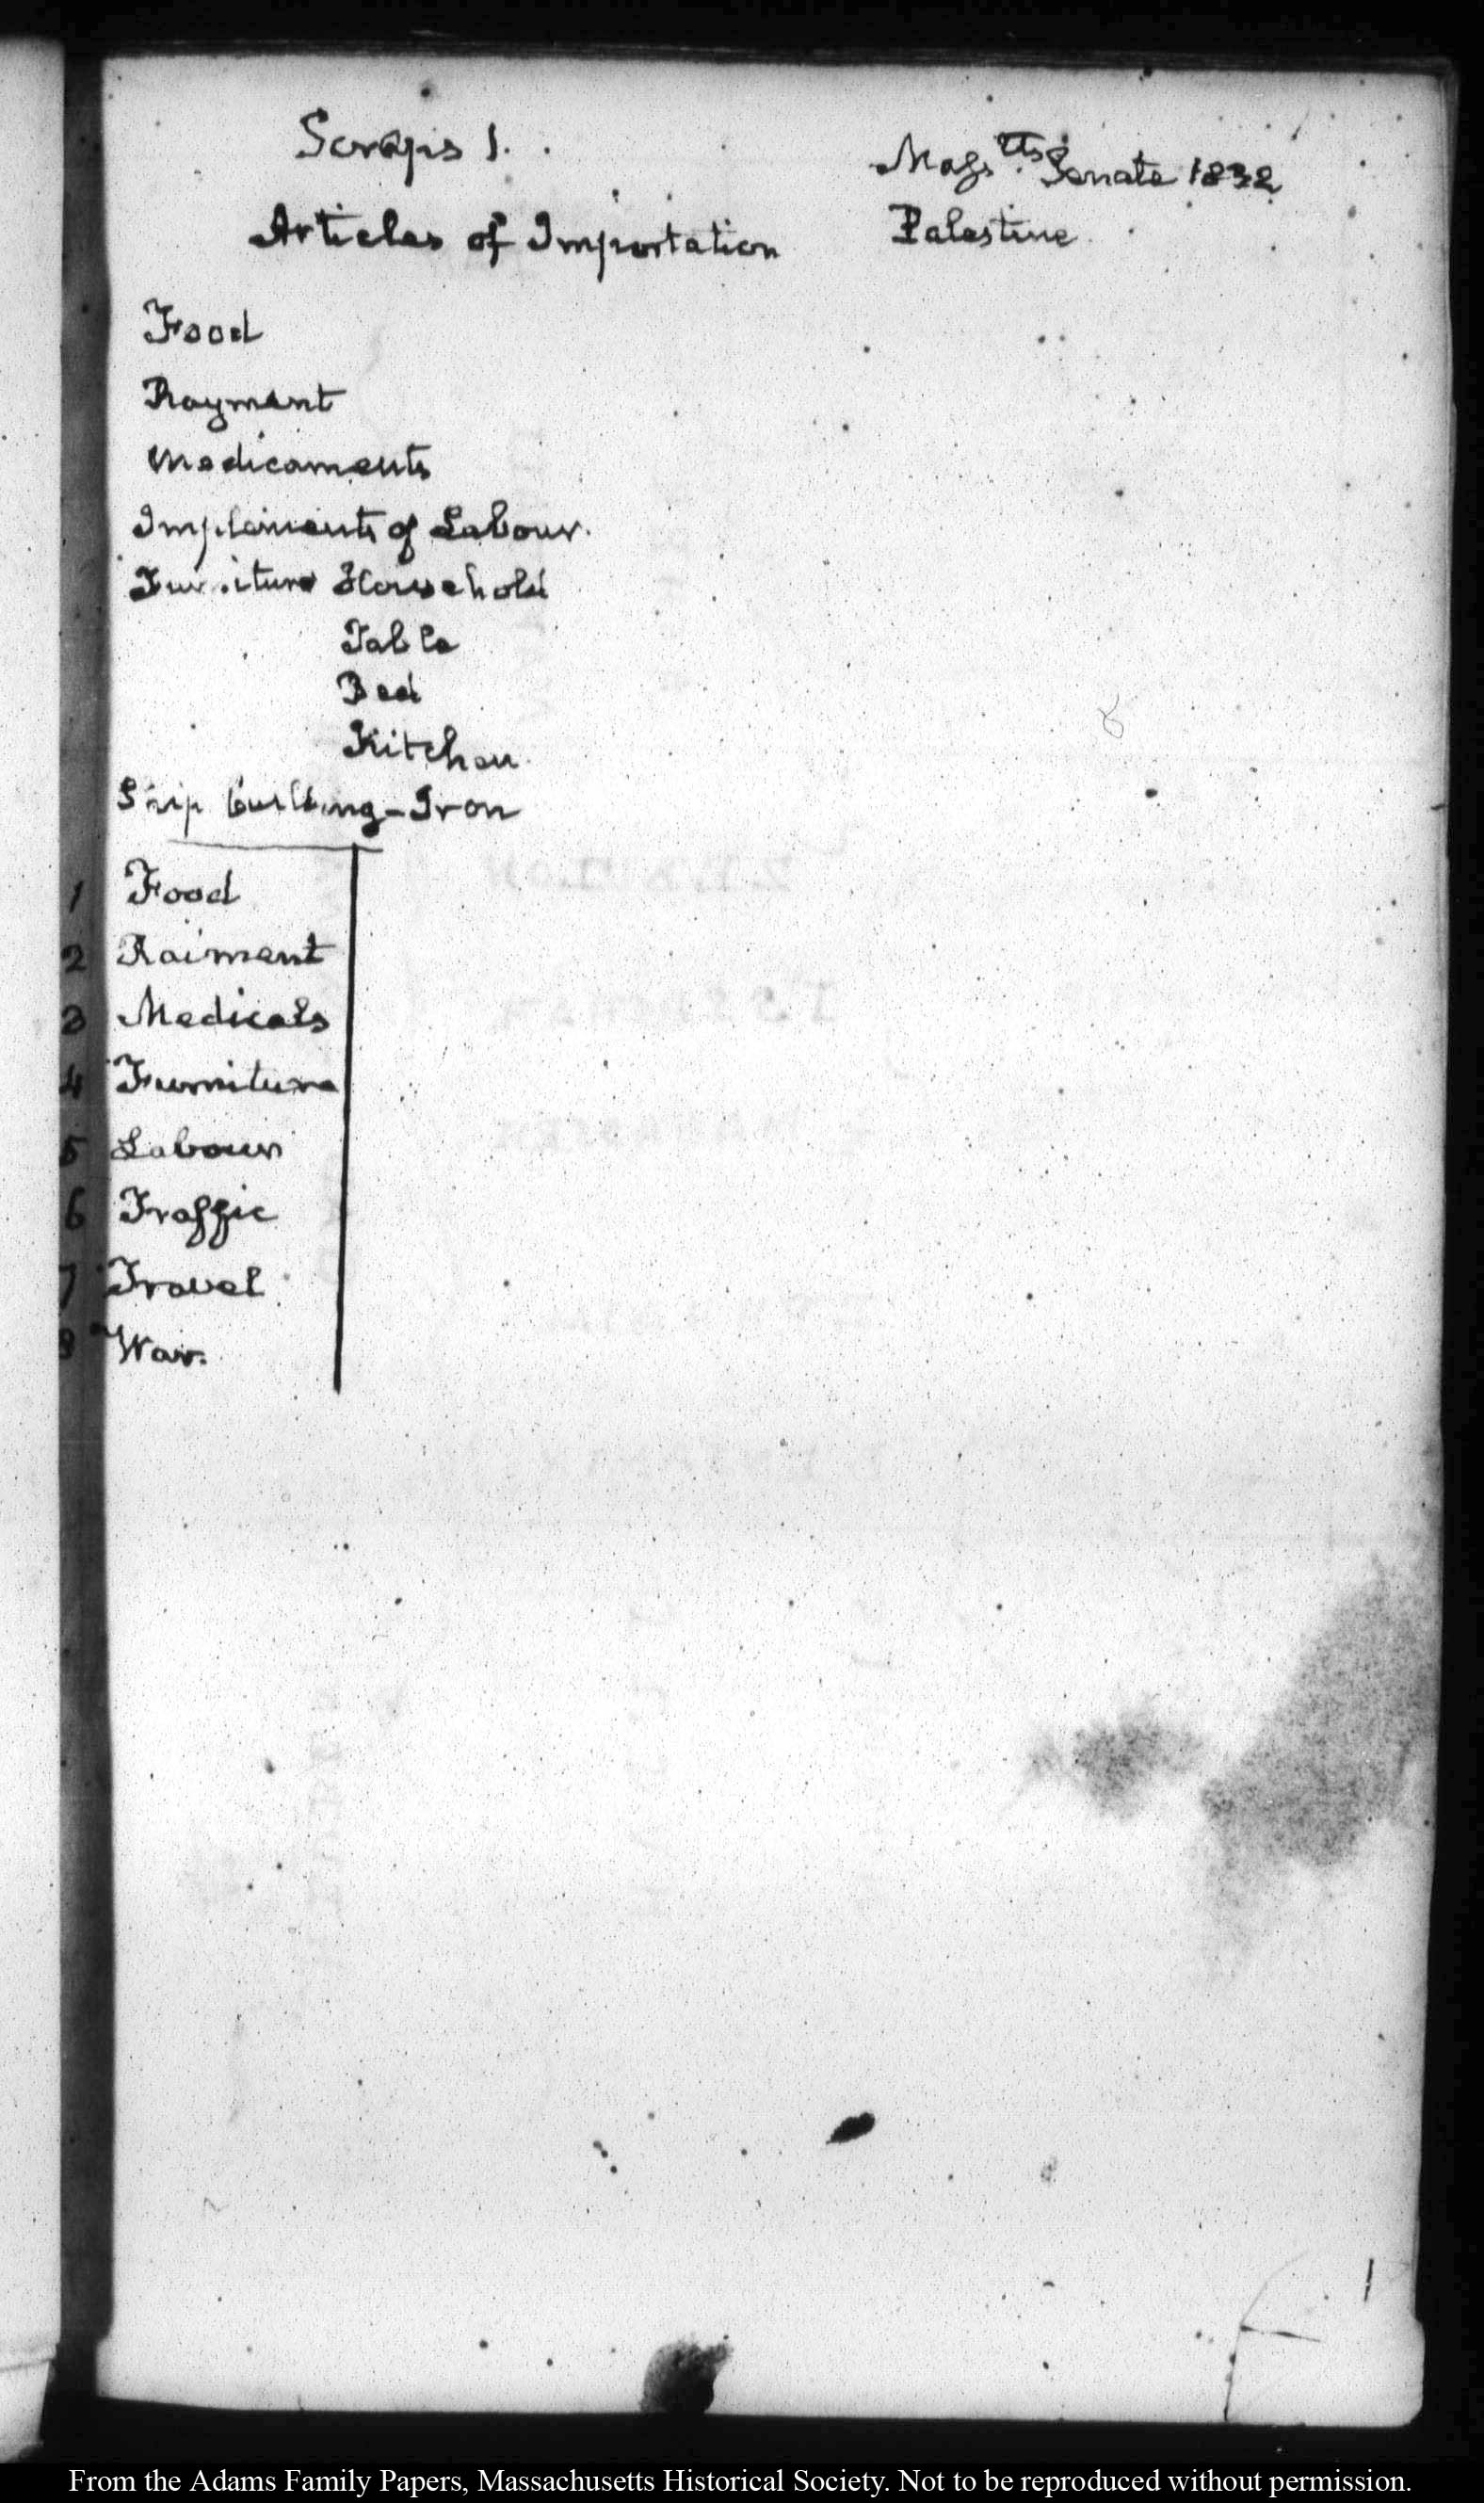 Scraps 1.
Mass.tts Senate 1832
Articles of Importation
Palestine
Food
Rayment
Medicaments
Implements of Labour.
Furniture Household
Table
Bed
Kitchen
Ship building - Iron
1 Food
2 Raiment
3 Medicals
4 Furniture
5 Labour
6 Traffic
7 Travel
8 War.
1
From the Adams Family Papers, Massachusetts Historical Society. Not to be reproduced without permission.